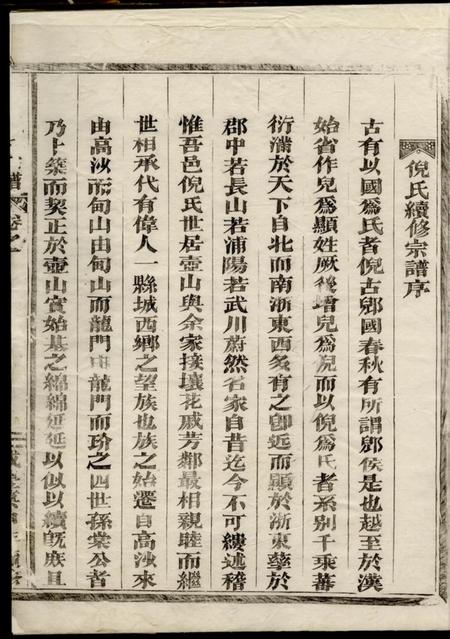 倪氏續修宗譜序
古有以國爲氏者倪古郳國春秋有所謂郳侯是也越至於漢
始省作兒爲顯姓厥後增兒爲倪而以倪爲氏者系別千乘蕃
衍滿於天下自北而南浙東西多有之卽近而顯於浙東發於
郡中若長山若浦陽若武川蔚然名家自昔迄今不可縷述稽
惟吾邑倪氏世居壺山與余家接壤花戚芳鄰最相親睦而繼
世相承代有偉人一縣城西鄉之望族也族之始遷自高沙來
由高沙而甸山由甸山而龍門由龍門而玠之四世孫棠公者
乃卜築而契正於壺山實始基之綿綿延延以似以續旣庶且
譜 卷之一